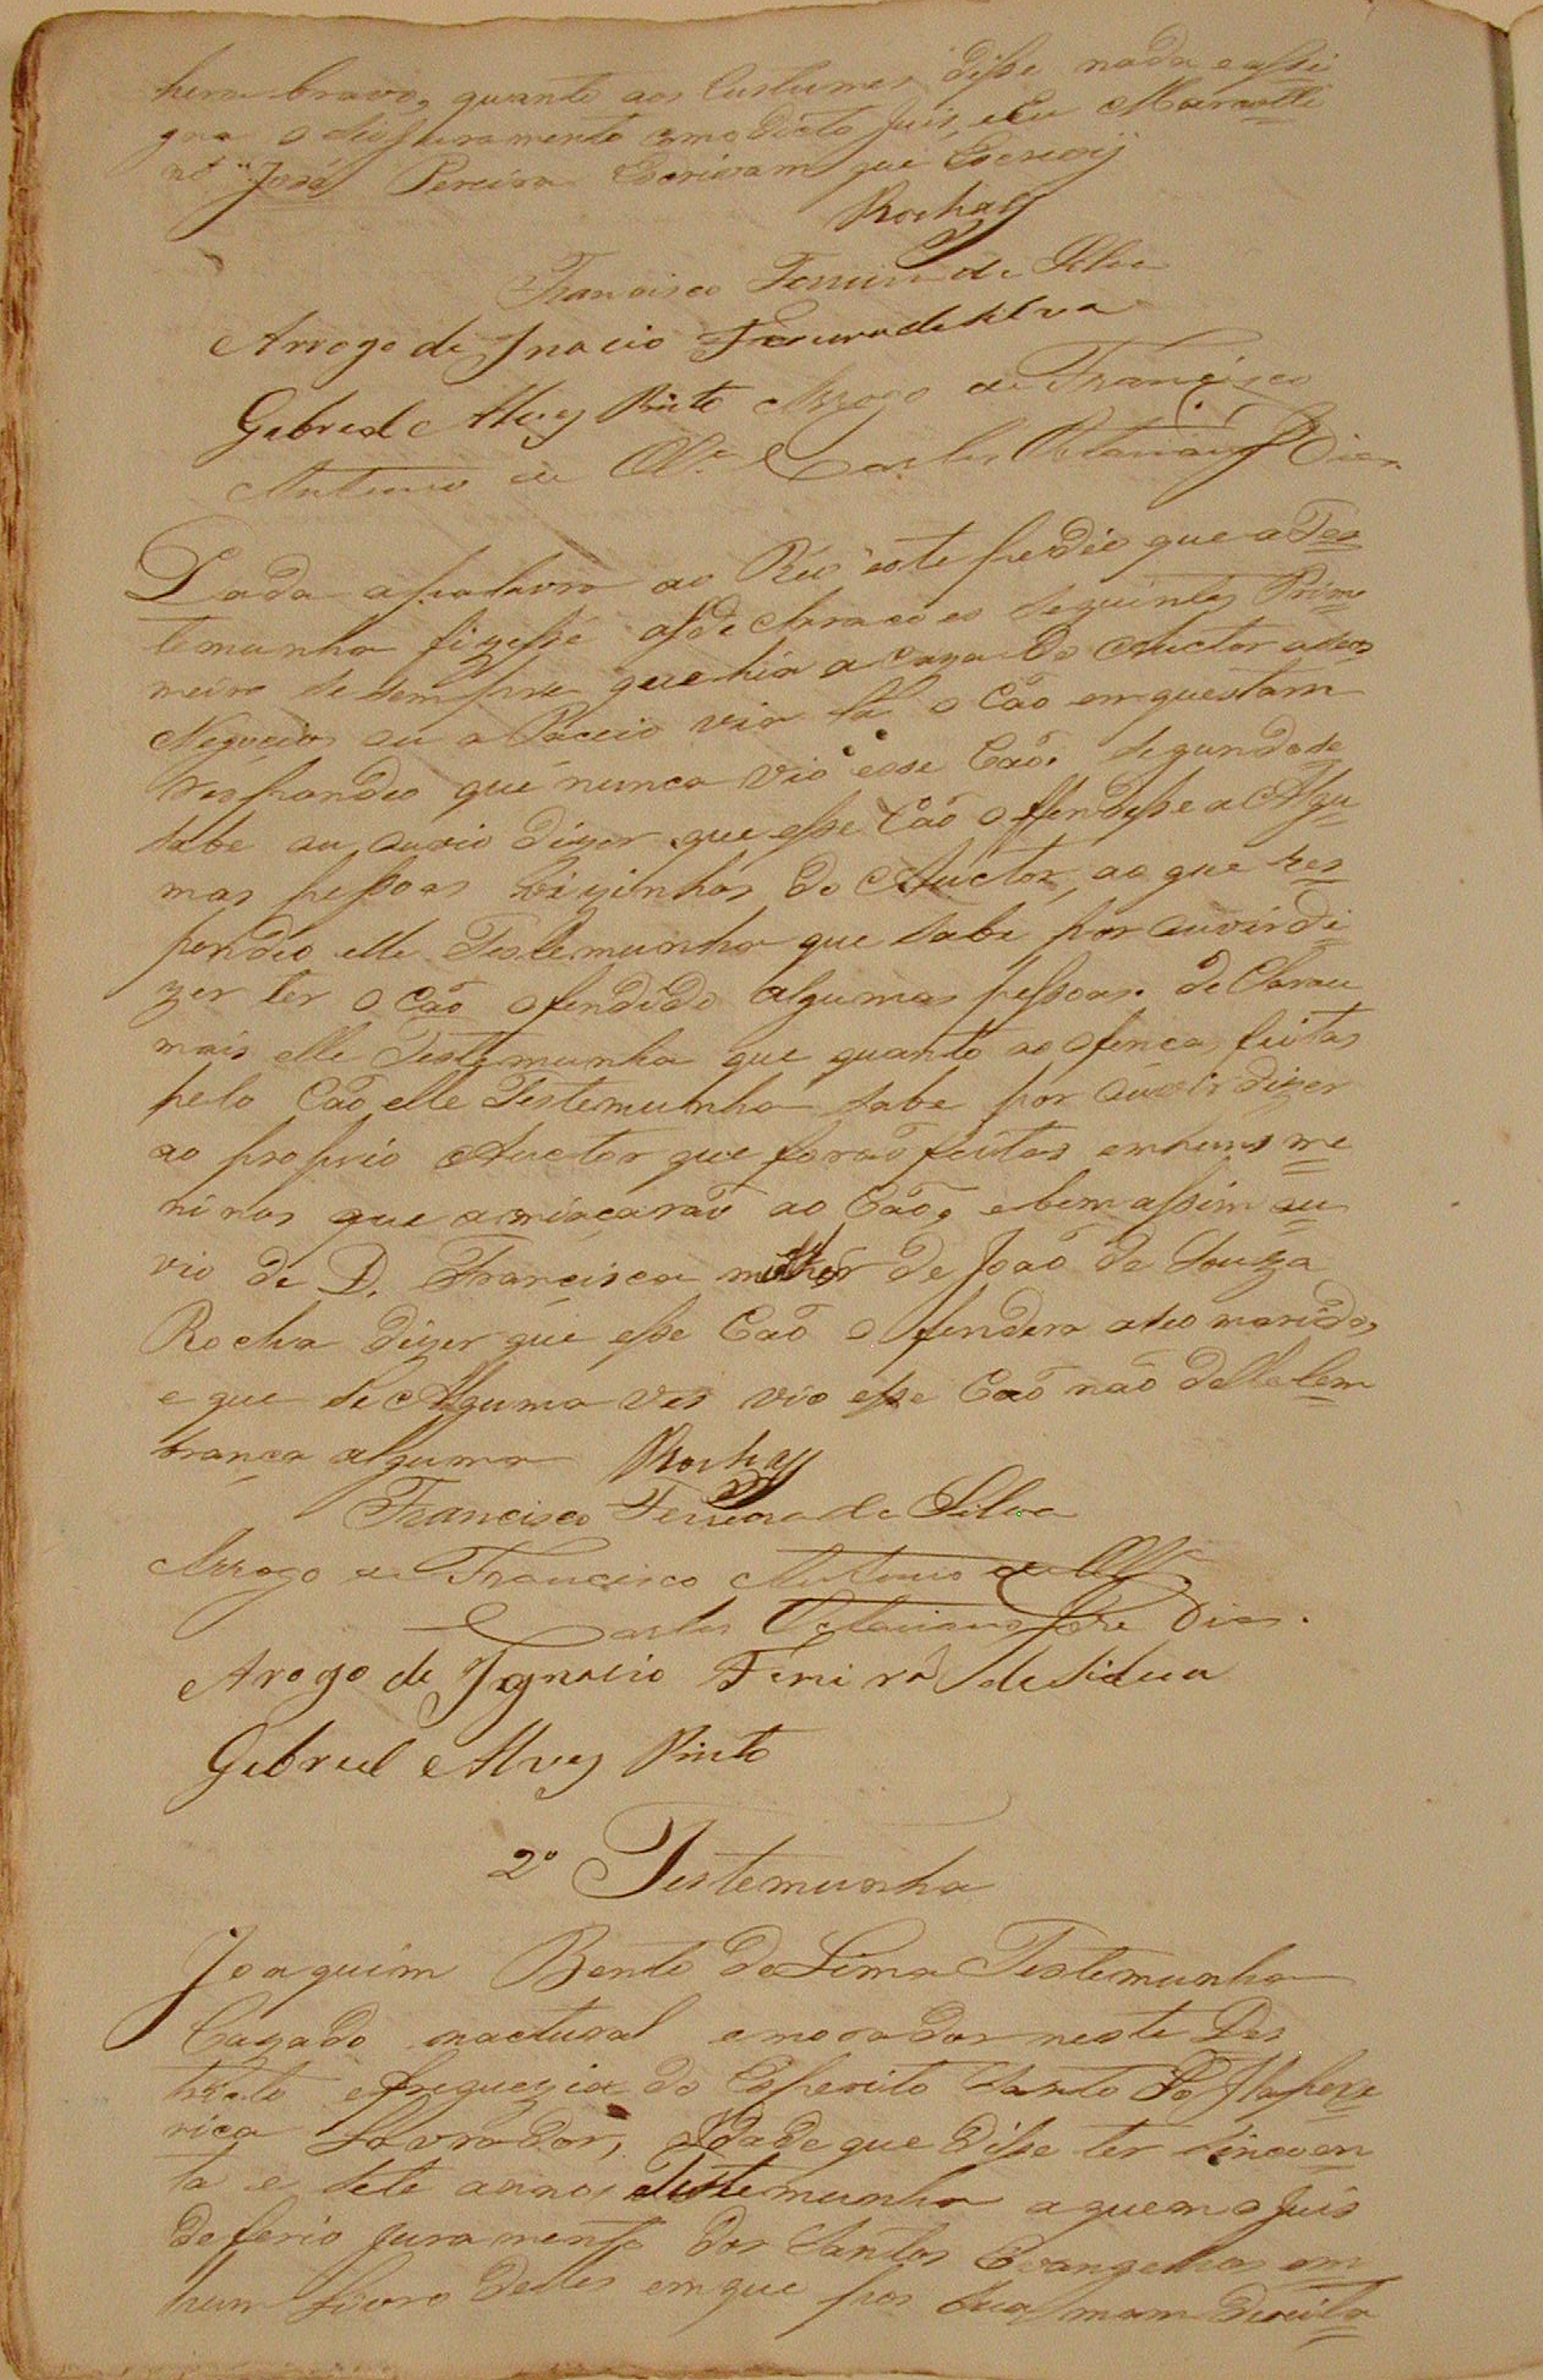 hera bravo, quanto aos Custumes disse nada e assi
gna o seo juramento como dicto Juis, eu Marcelli
no José Pereira Escrivam que Escrevij
Rocha
Francisco Ferreira da Silva
Arrogo de Jnacio Ferreira de Silva
Gabriel Alvez Pinto Arrogo de Francisco
Antonio de Olv.ª Carlos Dias
Dada a palavra ao Réo este pedio que a Tes
temunha fizesse as declaracoes seguintes Prime
meiro se sempre que hia a Caza do Auctor a seos
Negocios ou a Paceio via lá o Cão em questam
respondeo que nunca vio esse Cão. segundo se
sabe ou ouvio dizer que esse Cão offendesse a Algu
mas pessoas Vizinhas do Auctor, ao que res
pondeo elle Testemunha que sabe por ouvir di
zer ter o Cão ofendido algumas pessoas. de Clarou
mais elle Testemunha que quanto as ofencas feitas
pelo Cão elle Testemunha sabe por ouvir dizer
ao proprio Auctor que forão feitas em huns me
ninos que amiaçarão ao Cão, e bem assim ou
vio de D. Francisca mulher de João de Souza
Rocha dizer que esse Cão o fendera a seo marido,
e que se Alguma ves vio esse Cão não delle lem
brança alguma Rocha
Francisco Ferreira da Silva
Arrogo de Francisco Antonio de Olv.ª
Carlos Dias.
Arogo de Jgnacio Ferreira de Silva
Gabriel Alvez Pinto
2ª Testemunha
Joaquim Bento de Lima Testemunha
Cazado nactural e morador neste Des
tricto e freguezia do Esperito Santo do Itapece
rica Lavrador, Idade que disse ter sincoen
ta e sete annos Testemunha a quem o Juis
deferio juramento dos Santos Evangelhos em
hum livro delles em que pos sua mam direita